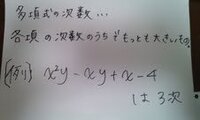 多項式の次数…
各項の次数のうちでもっとも大きいもの。
(例) x²y - xy + x - 4
は3次